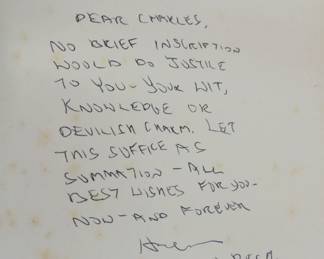 DEAR CHARLES,
NO BRIEF INSCRIPTION
WOULD DO JUSTICE
TO YOU - YOUR WIT,
KNOWLEDGE OR
DEVILISH CHARM. LET
THIS SUFFICE AS
SUMMATION - ALL
BEST WISHES FOR YOU -
NOW - AND FOREVER